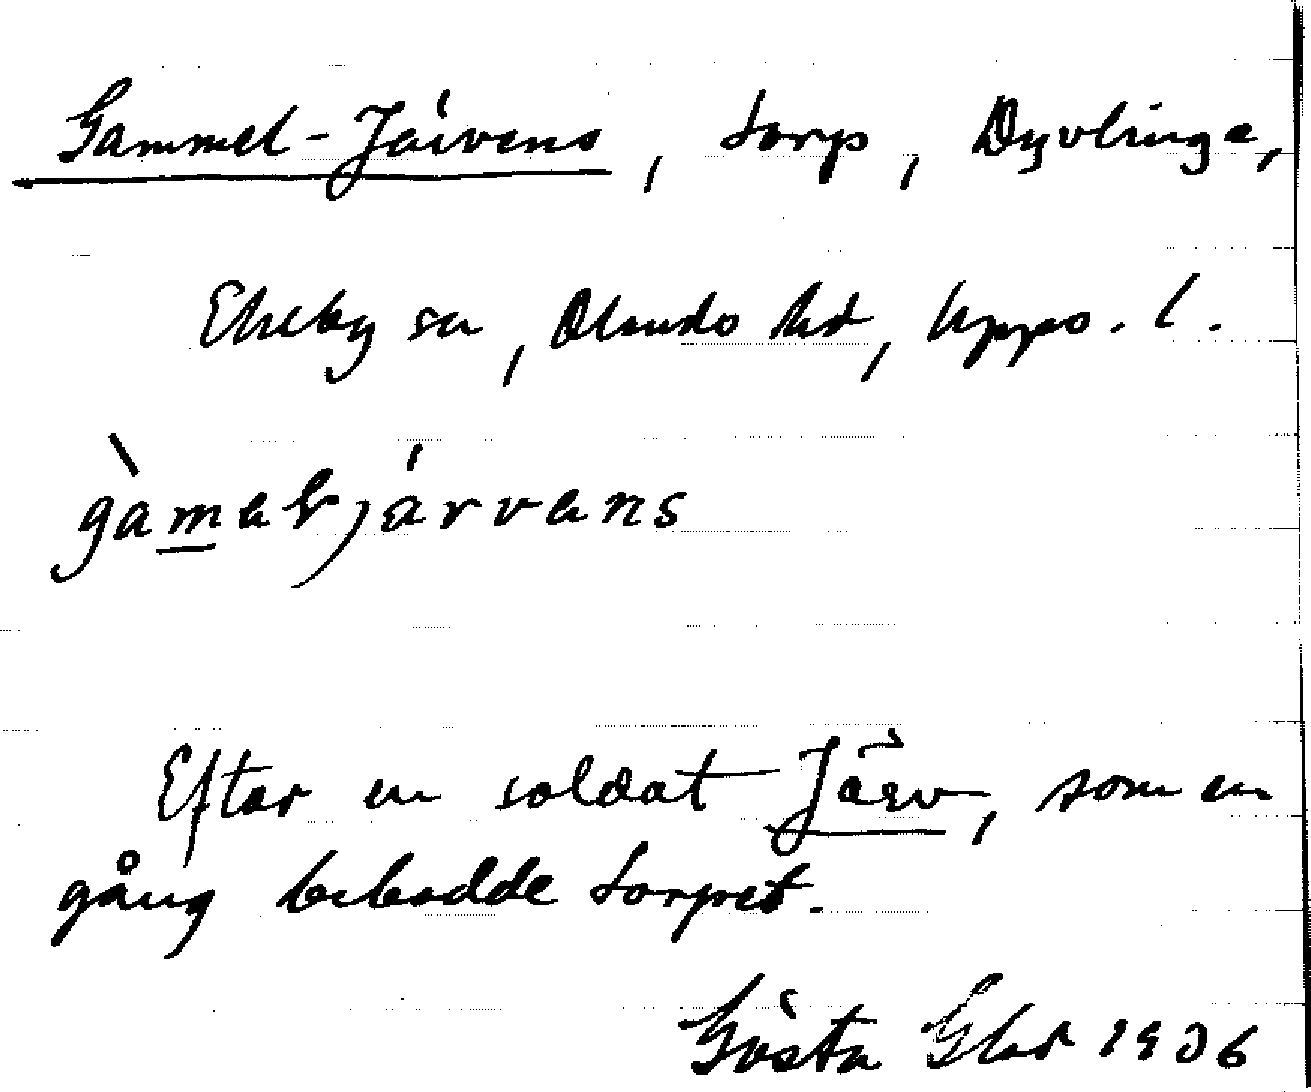 Gammel-Järvens, torp, Dyvlinge,
Ekeby sn, Olands hd, Upps. l.
gàmeljárvens
Efter en soldat Järv, som en
gång bebodde torpet.
Gösta 1936